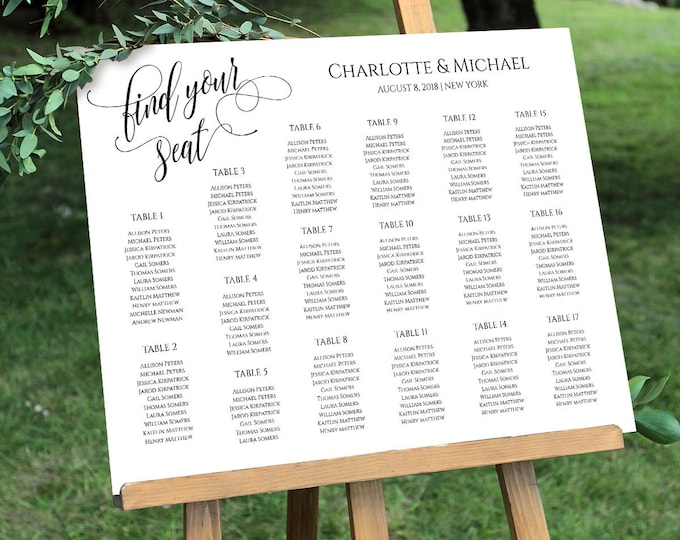 find your
seat
Charlotte & Michael
August 8, 2018 | New York
Table 1
Allison Peters
Michael Peters
Jessica Kirkpatrick
Jarod Kirkpatrick
Gail Somers
Thomas Somers
Laura Somers
William Somers
Kaitlin Matthew
Henry Matthew
Michelle Newman
Andrew Newman
Table 2
Allison Peters
Michael Peters
Jessica Kirkpatrick
Jarod Kirkpatrick
Gail Somers
Thomas Somers
Laura Somers
William Somers
Kaitlin Matthew
Henry Matthew
Table 3
Allison Peters
Michael Peters
Jessica Kirkpatrick
Jarod Kirkpatrick
Gail Somers
Thomas Somers
Laura Somers
William Somers
Kaitlin Matthew
Henry Matthew
Table 4
Allison Peters
Michael Peters
Jessica Kirkpatrick
Jarod Kirkpatrick
Gail Somers
Thomas Somers
Laura Somers
William Somers
Table 5
Allison Peters
Michael Peters
Jessica Kirkpatrick
Jarod Kirkpatrick
Gail Somers
Thomas Somers
Laura Somers
Table 6
Allison Peters
Michael Peters
Jessica Kirkpatrick
Jarod Kirkpatrick
Gail Somers
Thomas Somers
Laura Somers
William Somers
Kaitlin Matthew
Henry Matthew
Table 7
Allison Peters
Michael Peters
Jessica Kirkpatrick
Jarod Kirkpatrick
Laura Somers
William Somers
Kaitlin Matthew
Henry Matthew
Table 8
Allison Peters
Michael Peters
Jessica Kirkpatrick
Jarod Kirkpatrick
Gail Somers
Laura Somers
William Somers
Henry Matthew
Table 9
Allison Peters
Michael Peters
Jessica Kirkpatrick
Jarod Kirkpatrick
Gail Somers
Laura Somers
William Somers
Kaitlin Matthew
Henry Matthew
Table 10
Allison Peters
Michael Peters
Jessica Kirkpatrick
Jarod Kirkpatrick
Laura Somers
William Somers
Kaitlin Matthew
Henry Matthew
Table 11
Allison Peters
Michael Peters
Jessica Kirkpatrick
Jarod Kirkpatrick
Gail Somers
Laura Somers
William Somers
Kaitlin Matthew
Henry Matthew
Table 12
Allison Peters
Michael Peters
Jessica Kirkpatrick
Jarod Kirkpatrick
Thomas Somers
Laura Somers
William Somers
Kaitlin Matthew
Table 13
Allison Peters
Michael Peters
Jessica Kirkpatrick
Gail Somers
Laura Somers
William Somers
Kaitlin Matthew
Henry Matthew
Table 14
Allison Peters
Michael Peters
Jessica Kirkpatrick
Gail Somers
Laura Somers
William Somers
Henry Matthew
Table 15
Allison Peters
Michael Peters
Jessica Kirkpatrick
Jarod Kirkpatrick
Thomas Somers
Laura Somers
William Somers
Table 16
Allison Peters
Michael Peters
Jessica Kirkpatrick
Gail Somers
Laura Somers
William Somers
Kaitlin Matthew
Henry Matthew
Table 17
Allison Peters
Michael Peters
Jessica Kirkpatrick
Gail Somers
Laura Somers
William Somers
Kaitlin Matthew
Henry Matthew